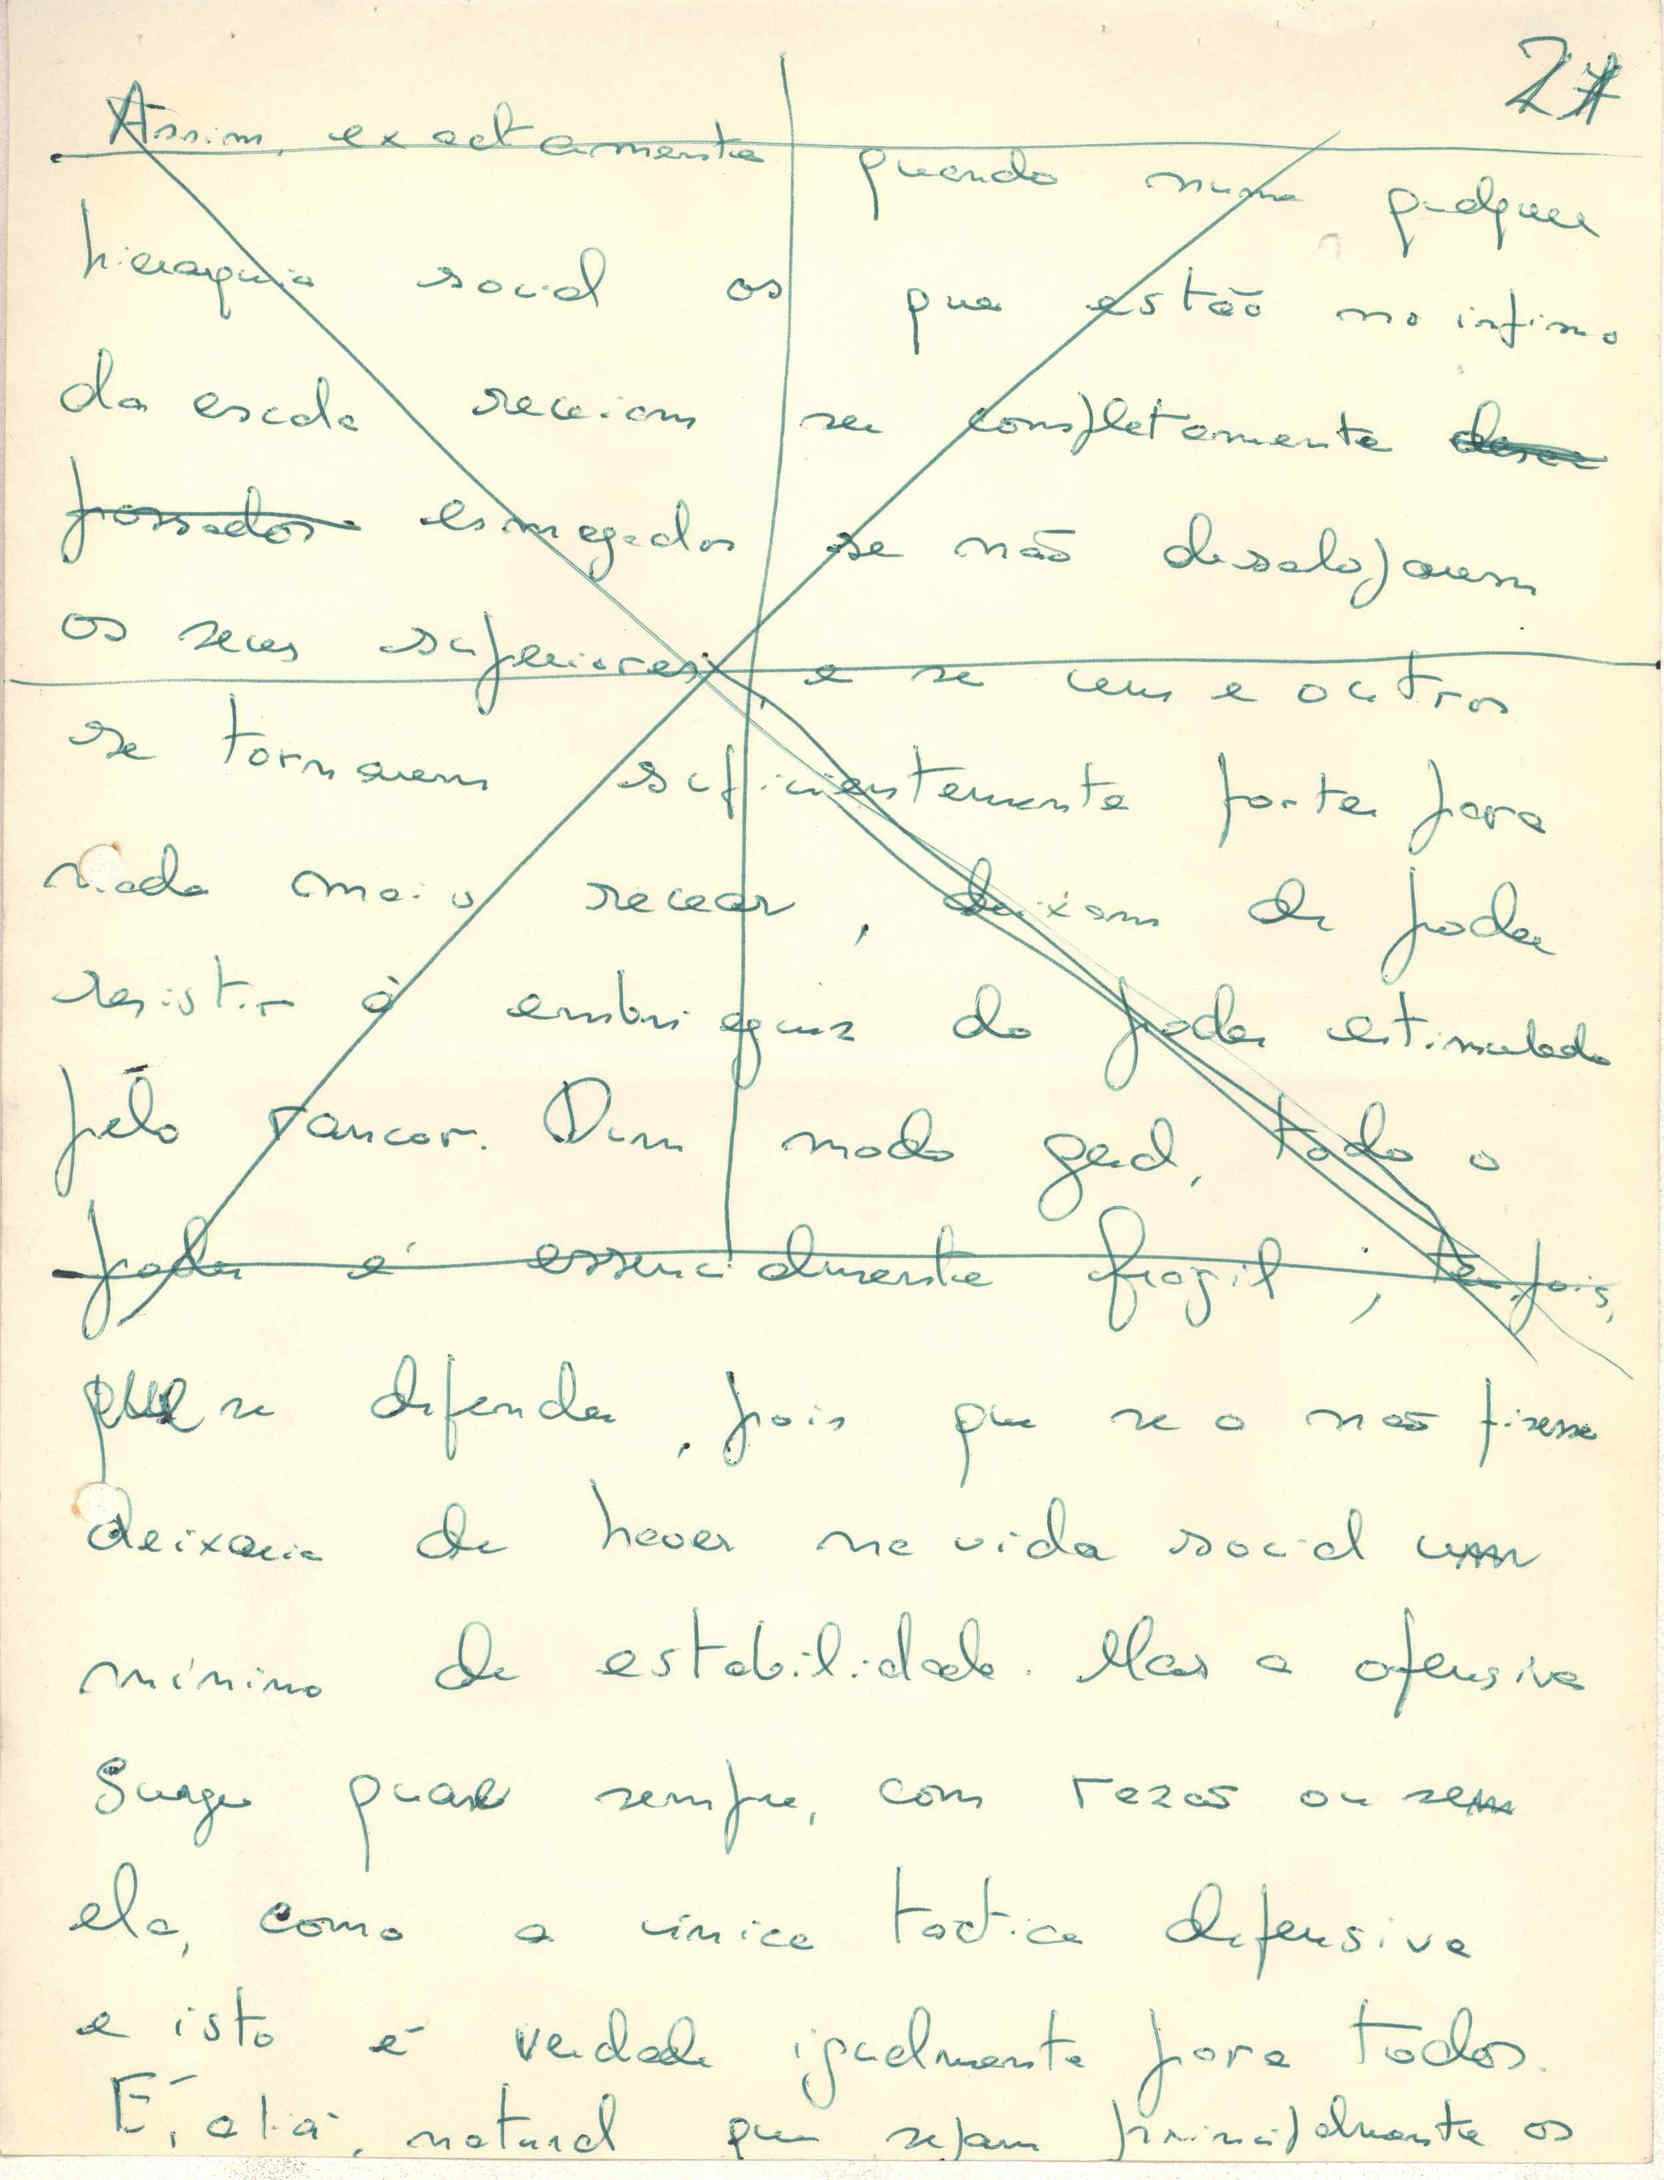 27
Assim, exactamente quando numa qualquer
hierarquia social os que estão no infimo
da escala receiam ser completamente
possados esmagados se não desalojarem
os seus superiores, e se uns e outros
se tornarem suficientemente fortes para
nada mais recear, deixam de poder
resistir à embriaguez do poder estimulada
pêlo rancor. Dum modo geral, todo o
poder é essencialmente fragil; tem, pois,
que se defender, pois que se o não fizesse
deixaria de haver na vida social um
mínimo de estabilidade. Mas a ofensiva
surge quase sempre, com razão ou sem
ela, como a única tactica defensiva
e isto é verdade igualmente para todos.
É, aliá, natural que sejam principalmente os